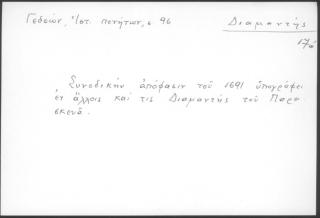 Γεδεών, Ἱστ. πενήτων, σ 96
Διαμαντής
17ος
Συνοδικὴν ἀπόφασιν τοῦ 1691 ὑπογράφει
ἐν ἄλλοις καί τις Διαμαντής τοῦ Παρα
σκευᾶ.